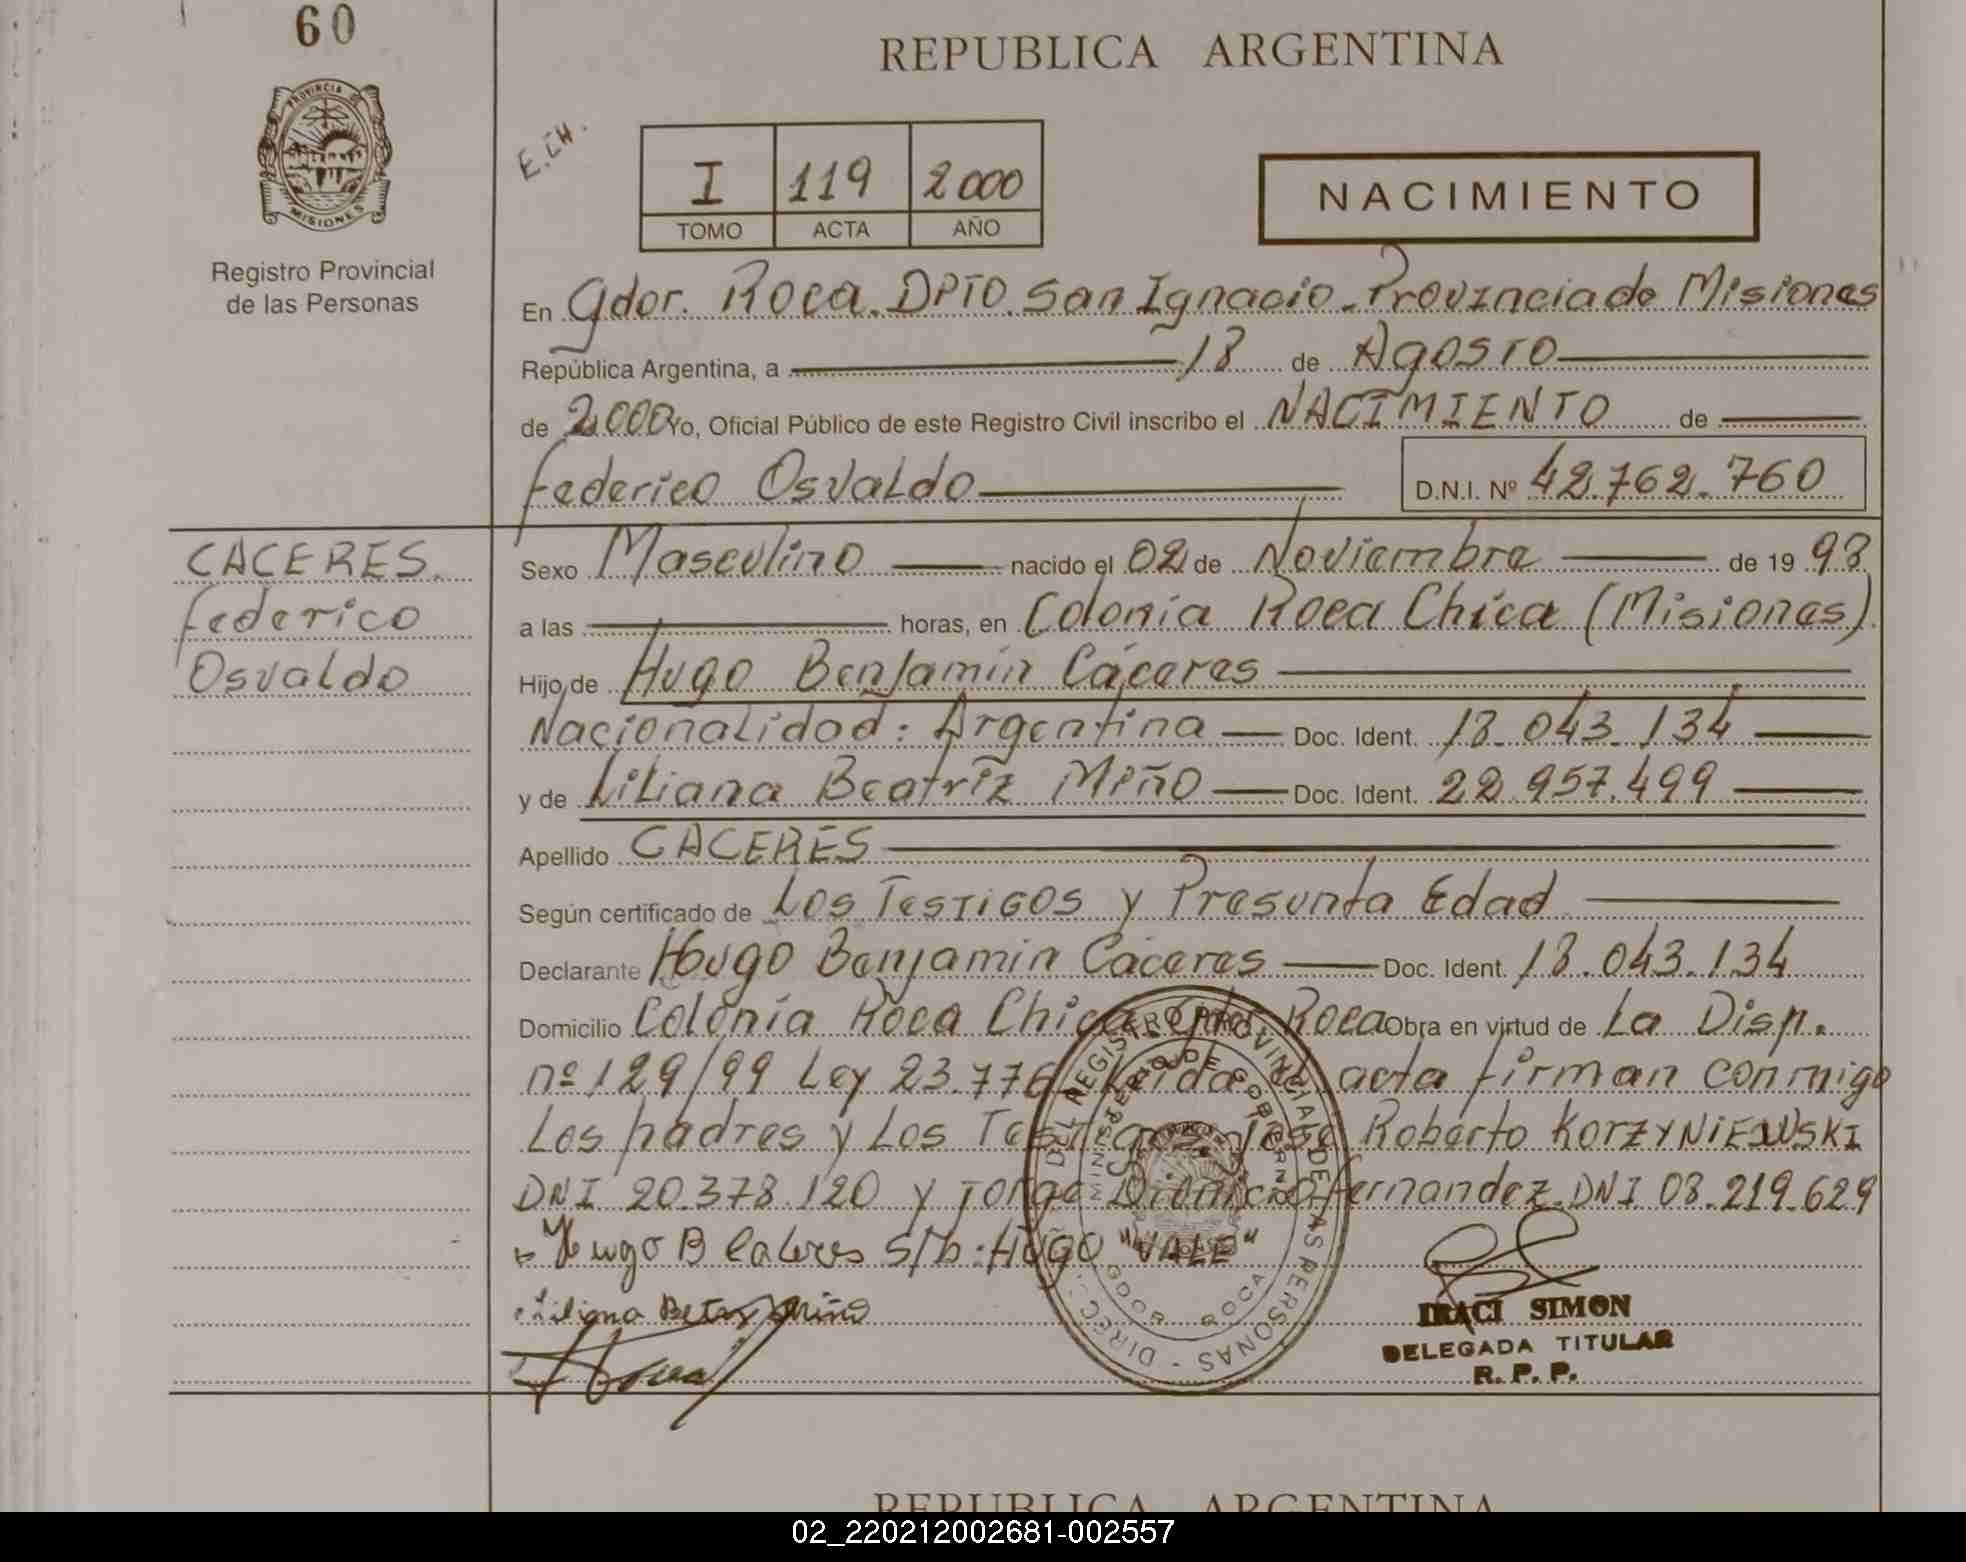 60
REPUBLICA ARGENTINA
PROVINCIA DE MISIONES
Registro Provincial
de las Personas
E.CH.
I 119 2000
TOMO ACTA AÑO
NACIMIENTO
En Gdor. Roca. DPTO. San Ignacio. Provincia de Misiones
República Argentina, a 18 de Agosto
de 2.000 Yo, Oficial Público de este Registro Civil inscribo el NACIMIENTO de
Federico Osvaldo D.N.I. Nº 42.762.760
CACERES.
Federico
Osvaldo
Sexo Masculino nacido el 02 de Noviembre de 19 98
a las horas, en Colonia Roca Chica (Misiones).
Hijo de Hugo Benjamín Cáceres
Nacionalidad: Argentina Doc. Ident. 18.043.134
y de Liliana Beatríz Miño Doc. Ident. 22.957.499
Apellido CACERES
Según certificado de Los Testigos y Presunta Edad
Declarante Hugo Benjamín Cáceres Doc. Ident. 18.043.134
Domicilio Colonia Roca Chica. Gdor. Roca Obra en virtud de La Disp.
nº 129/99 Ley 23.776 Leida el acta firman conmigo
Los padres y Los Testigos José Roberto KORZYNIEWSKI
DNI 20.378.120 y Jorge Dionicio Fernandez. DNI 08.219.629
Hugo B Caceres s/b: HUGO "VALE"
Liliana Miño
DIREC. DEL REGISTRO PROVINCIAL DE LAS PERSONAS
MINISTERIO DE GOBIERNO
GDOR ROCA
IRACI SIMON
DELEGADA TITULAR
R. P. P.
REPUBLICA ARGENTINA
02_220212002681-002557